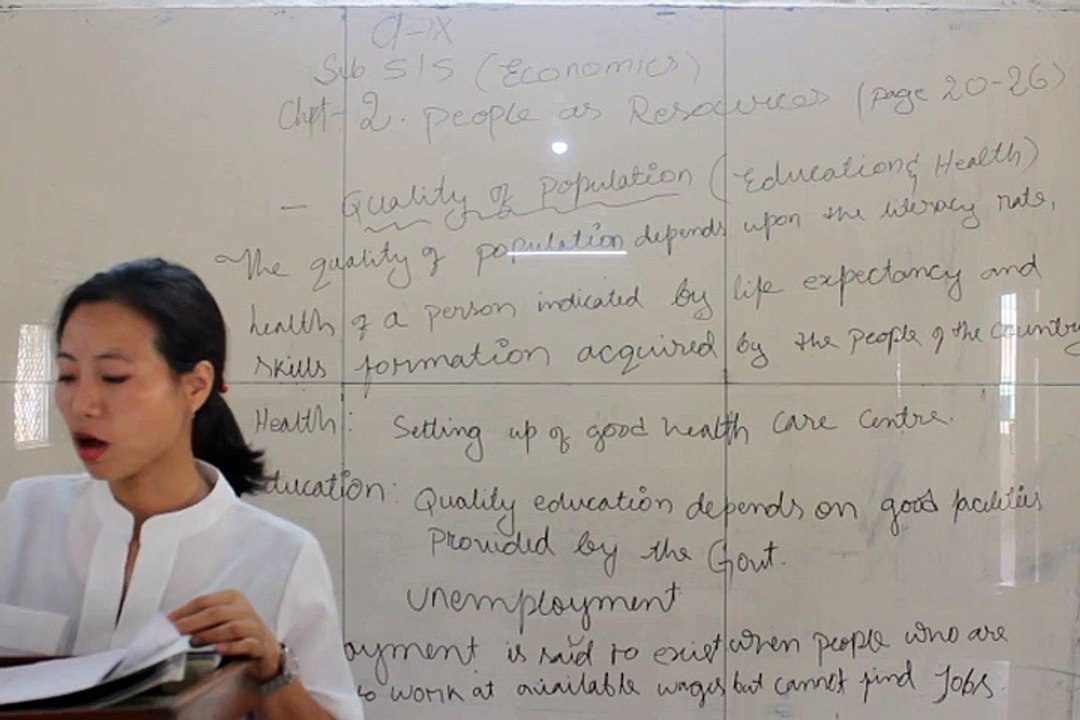 Cl-IX
Sub S/S (Economics)
Chpt-2. People as Resources (page 20-26)
- Quality of Population (Education & Health)
The quality of population depends upon the literacy rate,
health of a person indicated by life expectancy and
skills formation acquired by the people of the country
Health: Setting up of good health care centre.
ducation: Quality education depends on good facilities
Provided by the Govt.
Unemployment
oyment is said to exist when people who are
to work at available wages but cannot find Jobs.